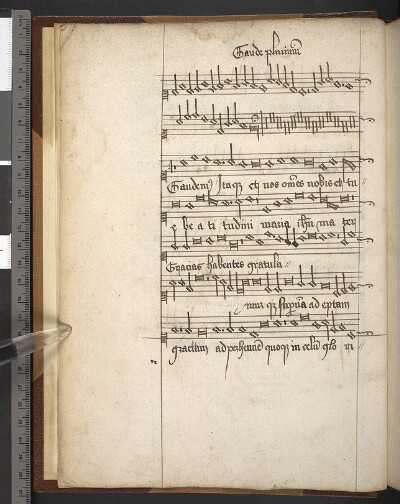 Gaude plurimum
Gaudem9 Itaqz et nos om̄es nobis et tu
e be a ti tudini maria ih̄u ma ter
Gracias habentes gratula
mur qz
graciam ad perhennē quoqz in celū glo ri